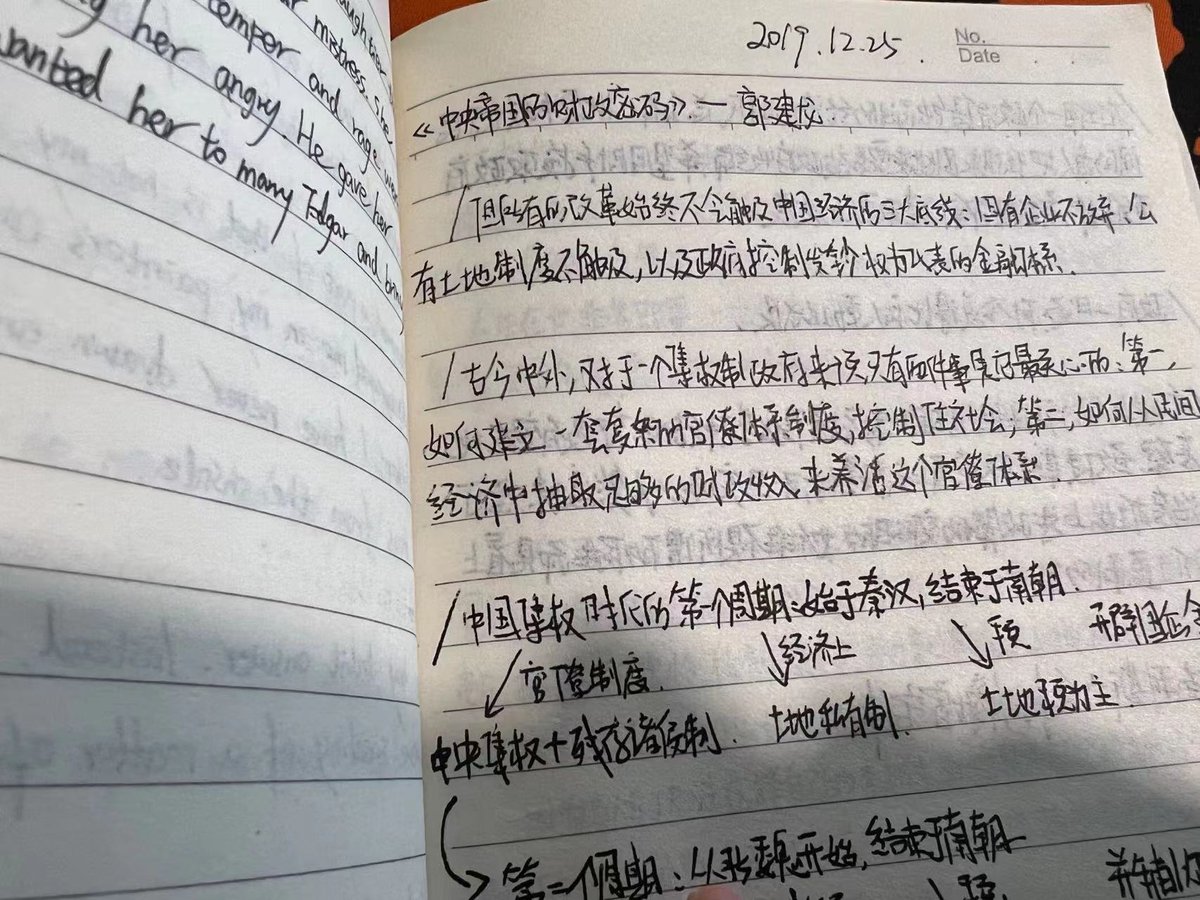 ughter
mistress. She
temper and rage
her angry. He gave her
wanted her to marry Edgar and
2019.12.25.
No.
Date
《中央帝国的财政密码》— 郭建龙.
/但所有的改革始终不会触及中国经济的三大底线：国有企业不放弃、公
有土地制度不触及，以及政府控制发钞权为代表的金融体系.
/古今中外，对于一个集权制政府来说，只有两件事是它最关心的：第一，
如何建立一套复杂的官僚体系制度，控制住社会；第二，如何从民间
经济中抽取足够的财政收入来养活这个官僚体系.
/中国集权时代的第一个周期：始于秦汉，结束于南朝.
官僚制度. 经济上 税
中央集权+残存诸侯制. 土地私有制. 土地税为主.
第二个周期：从北魏开始，结束于南朝
税